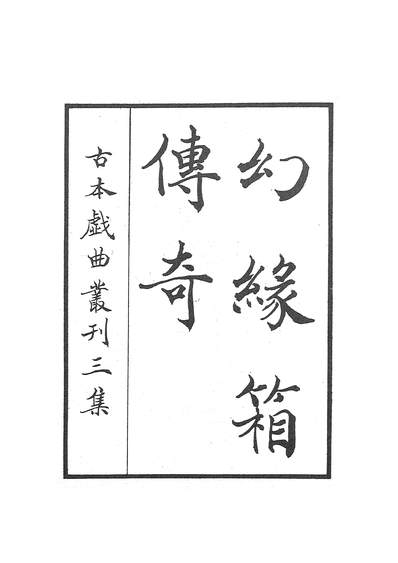 幻緣箱
傳奇
古本戲曲叢刊三集